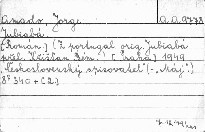 Amado, Jorge. A.A.9778
Jubiabá.
[Román.] (Z portugal. orig. Jubiabá
přel. Křišťan Bém.) [Praha] 1949
Československý spisovatel (- „Máj")
8° 340 + [2.]